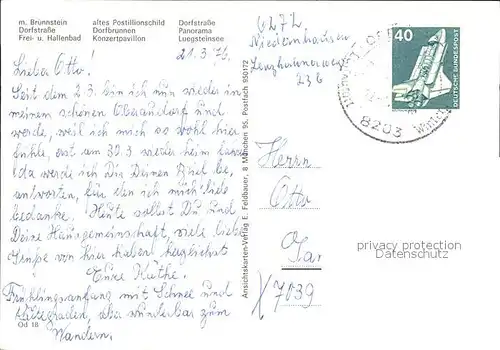 m. Brünnstein altes Postillionschild Dorfstraße
Dorfstraße Dorfbrunnen Panorama
Frei- u. Hallenbad Konzertpavillon Luegsteinsee
21.3.76
6272
Niedernhausen
23 b
Lieber Otto!
Seit dem 2.3. bin ich nun wieder in
meinem schönen Oberaudorf und
werde, weil ich mich so wohl hier
fühle, erst am 30.3 wieder heim
da werde ich Dir Deinen Brief be,
antworten, für den ich mich
bedanke. Heute sollst Du und
Deine Hausgemeinschaft, viele liebe
Grüße von hier haben! herzlichst
Eure Käthe.
Frühlingsanfang mit Schnee und
Kältegraden, aber wunderbar zum
Wandern.
Od 18
Ansichtskarten-Verlag E. Feldbauer, 8 München 95, Postfach 950172
40
DEUTSCHE BUNDESPOST
8203
Herrn
Otto
7039
privacy protection
Datenschutz